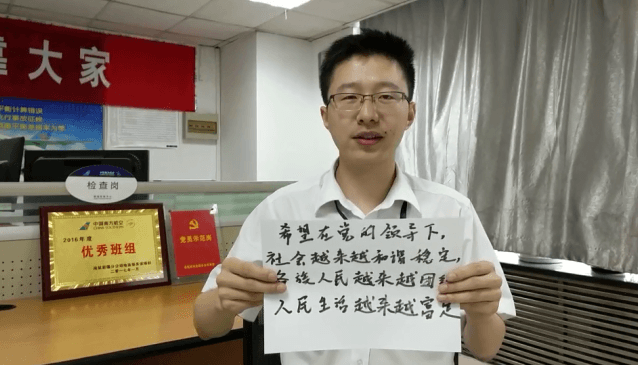 大家
检查岗
中国南方航空
2016年度
优秀班组
党员示范岗
希望在党的领导下,
社会越来越和谐稳定,
各族人民越来越团
人民生活越来越富足